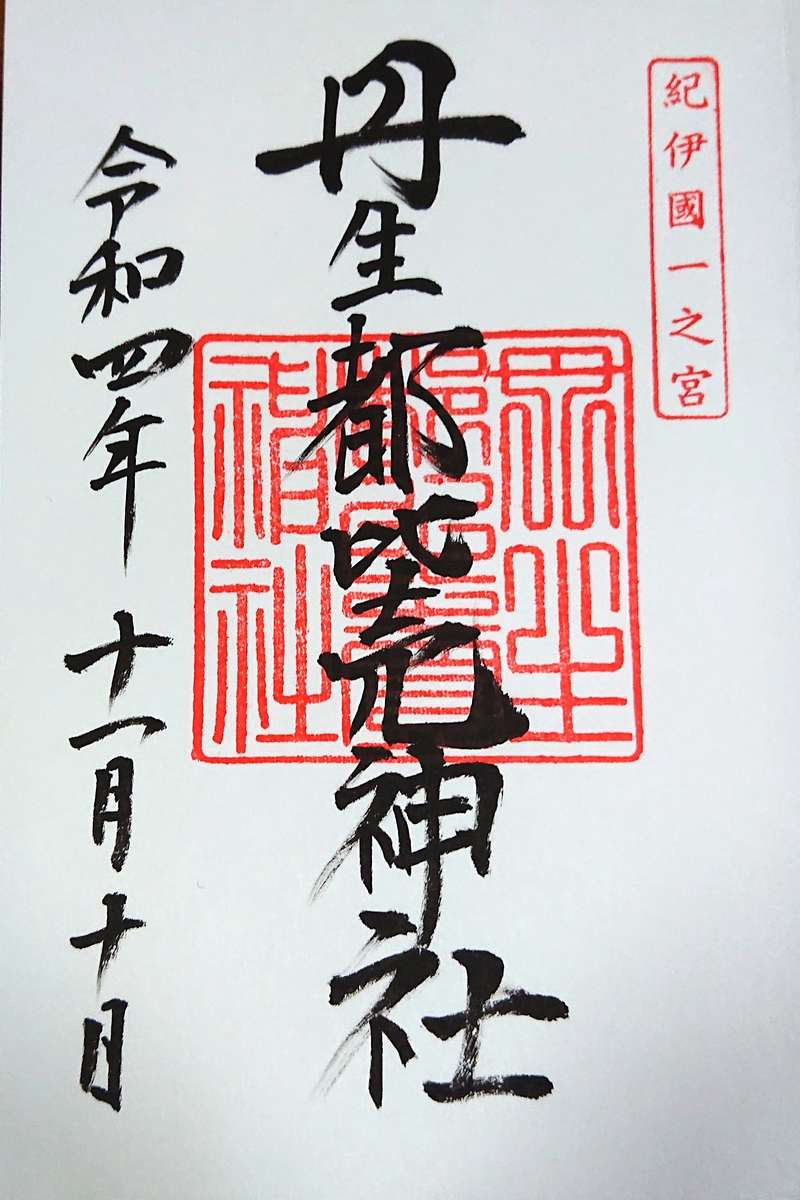 紀伊國一之宮
丹生都比売神社
丹生
都比賣
神社
令和四年十一月十日